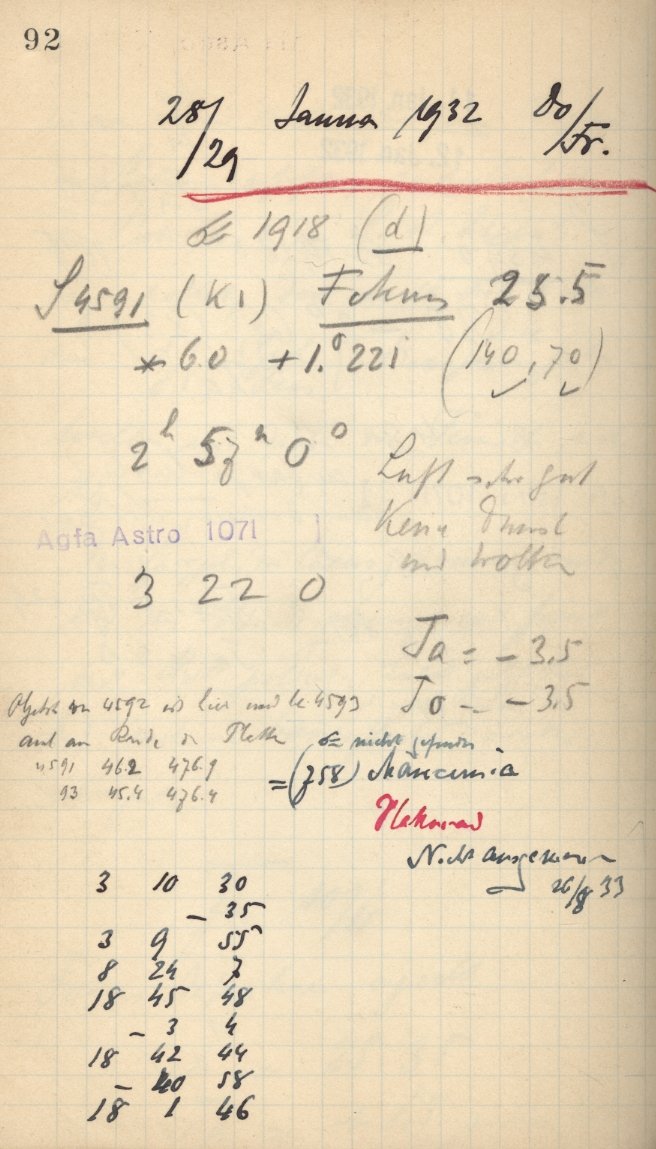 92
28/29 Januar 1932 Do/Fr.
1918 (d)
S 4591 (K1) Fokus 23.5
* 60 +1.°221 (140, 70)
2h 57m 0s
Luft sehr gut
Keine Dunst
und Wolken
Agfa Astro 1071
3 22 0
Ja = - 3.5
Jo = - 3.5
Objekt von 4592 ist hier und be 4593
auf am Rande der Platte
nicht gefunden
4591 46.2 476.9
93 45.4 476.4
= (758) Mancunia
Nicht ausgemessen
26/8 33
3 10 30
- 35
3 9 55
8 24 7
18 45 48
- 3 4
18 42 44
- 40 58
18 1 46